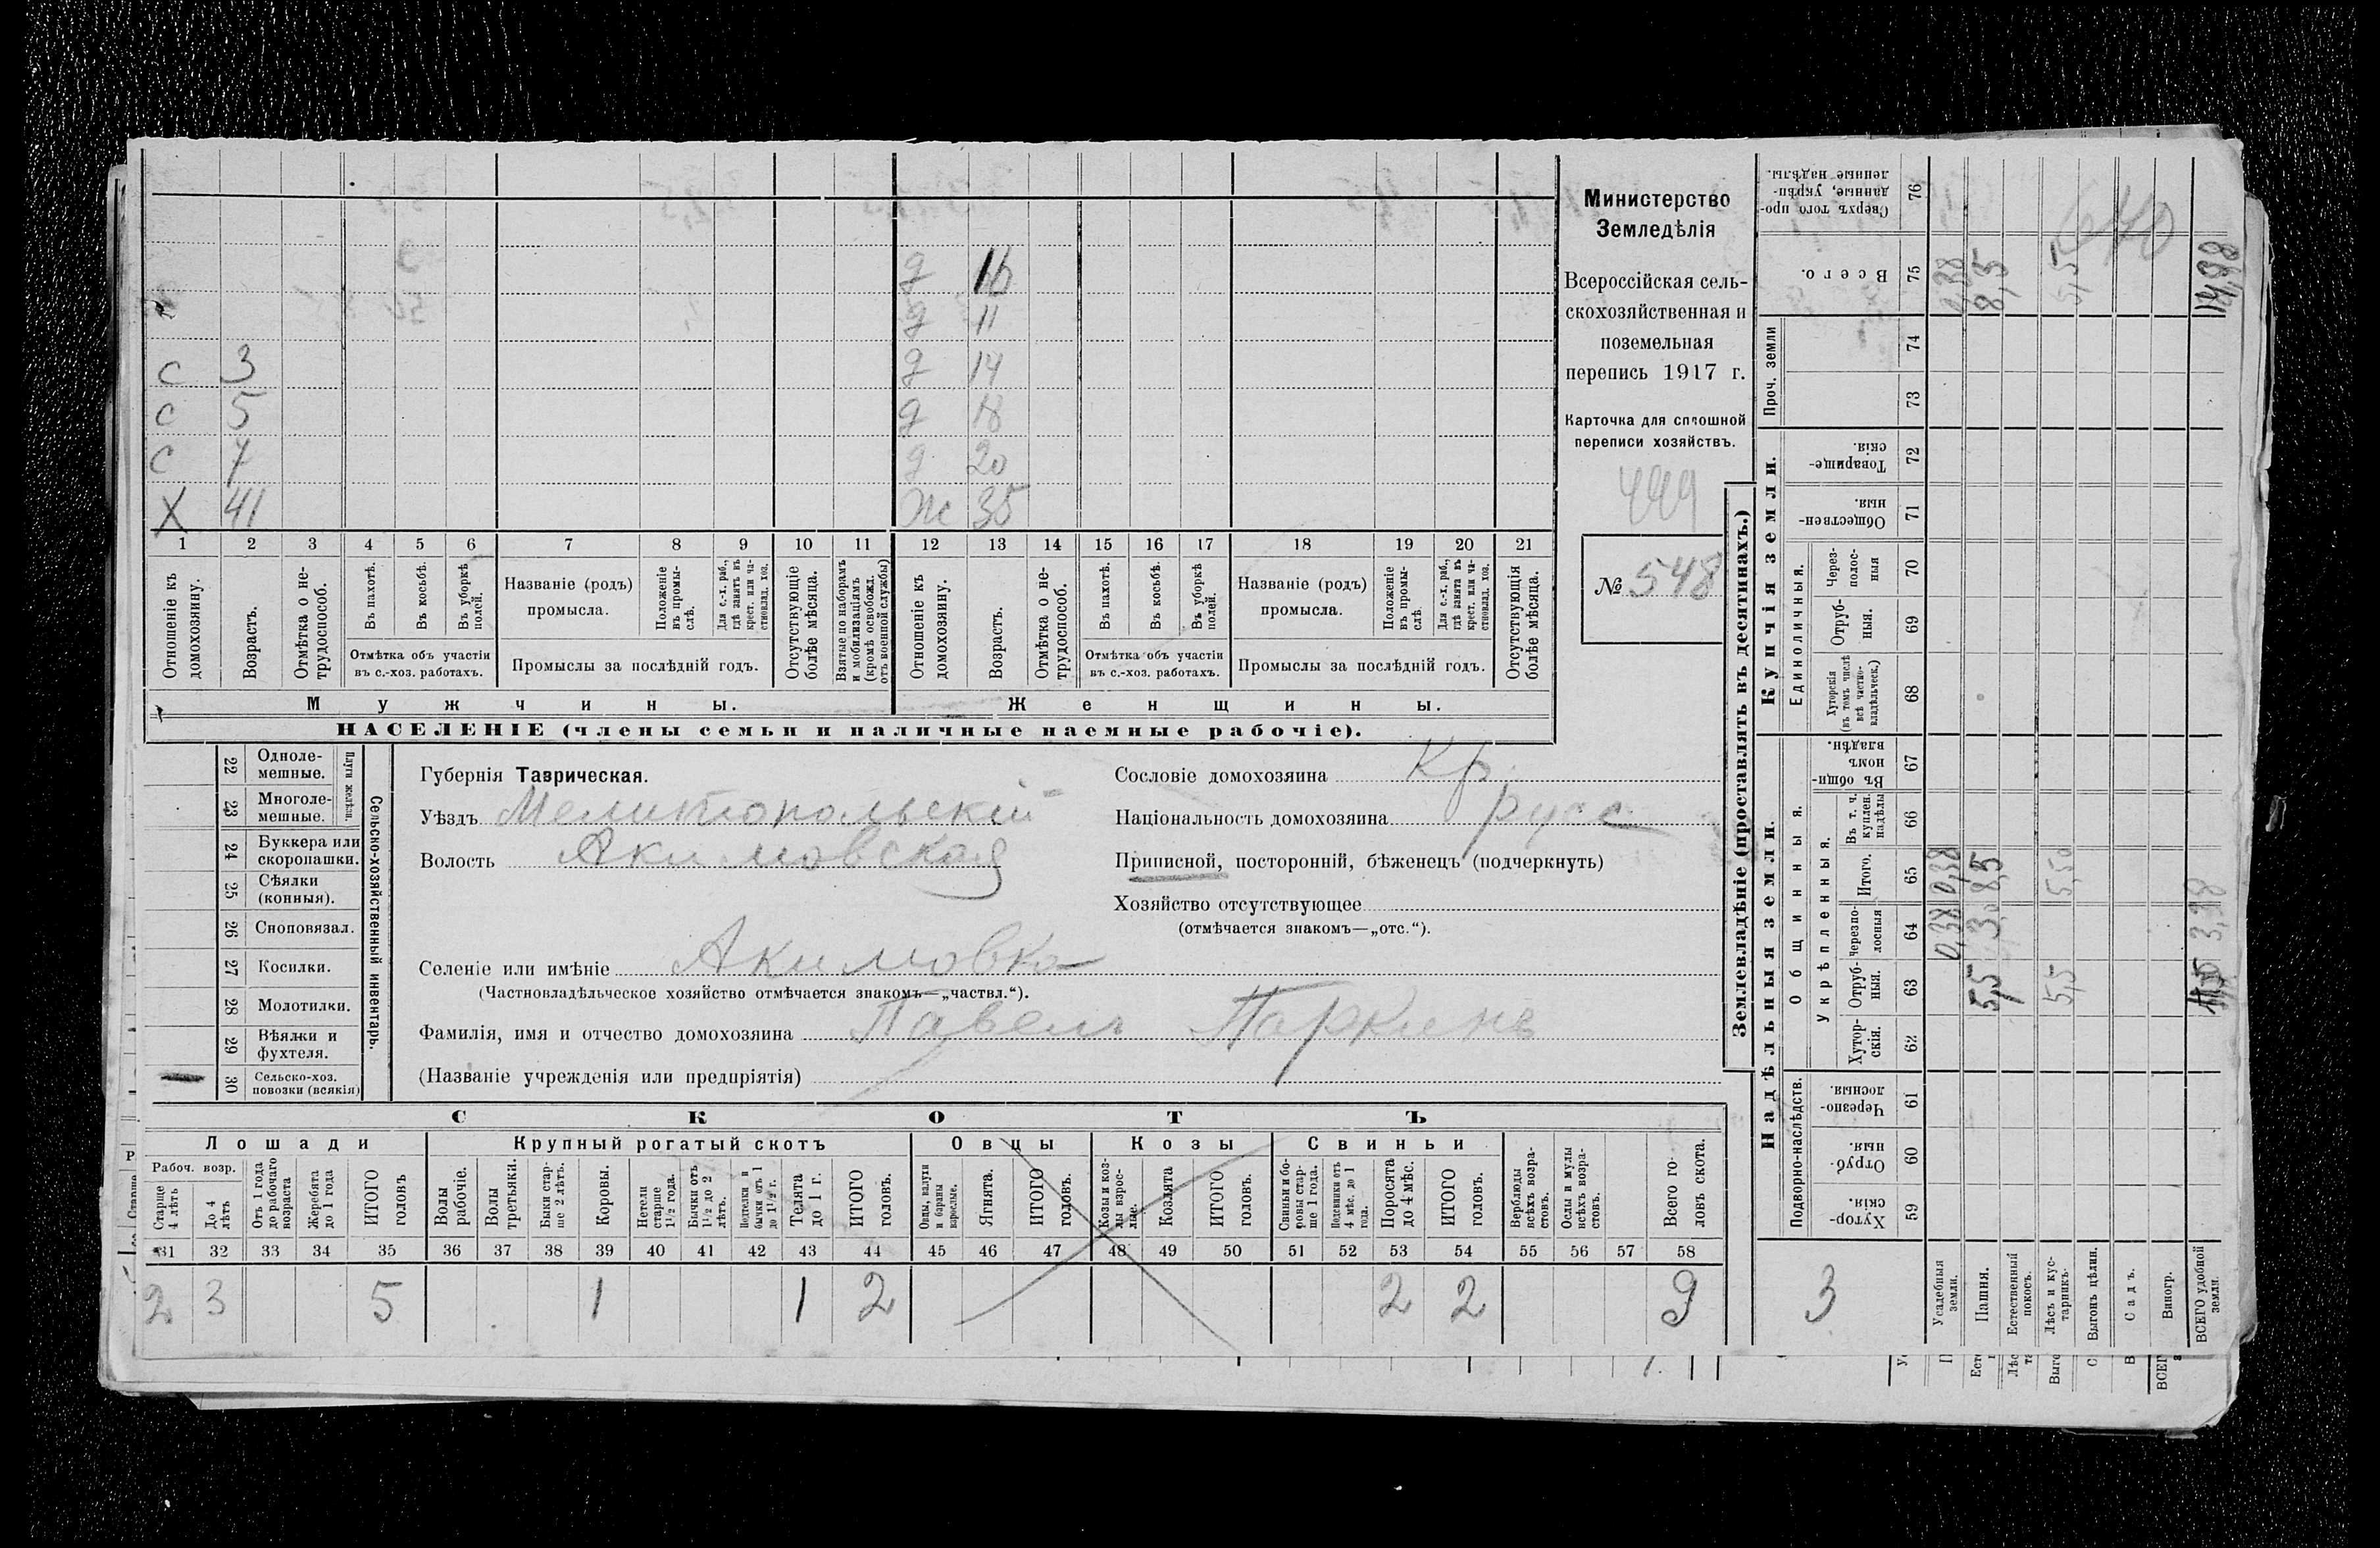 Министерство
Земледѣлія
Всероссійская сель-
скохозяйственная и
поземельная
перепись 1917 г.
Карточка для сплошной
переписи хозяйствъ.
499
№ 548
д 16
д 11
с 3 д 14
с 5 д 18
с 7 д 20
Х 41 Ж 35
1 2 3 4 5 6 7 8 9 10 11 12 13 14 15 16 17 18 19 20 21
Отношеніе къ домохозяину.
Возрастъ.
Отмѣтка о не-трудоспособ.
Въ пахотѣ.
Въ косьбѣ.
Въ уборкѣ полей.
Отмѣтка объ участіи
въ с.-хоз. работахъ.
Названіе (родъ)
промысла.
Положеніе въ промы-слѣ.
Для с.-х. раб., гдѣ занятъ въ крест. или ча-стновлад. хоз.
Промыслы за послѣдній годъ.
Отсутствующіе болѣе мѣсяца.
Взятые по наборамъ и мобилизаціямъ (кромѣ освобожд. отъ военной службы)
Отношеніе къ домохозяину.
Возрастъ.
Отмѣтка о не-трудоспособ.
Въ пахотѣ.
Въ косьбѣ.
Въ уборкѣ полей.
Отмѣтка объ участіи
въ с.-хоз. работахъ.
Названіе (родъ)
промысла.
Положеніе въ промы-слѣ.
Для с.-х. раб., гдѣ занята въ крест. или ча-стновлад. хоз.
Промыслы за послѣдній годъ.
Отсутствующія болѣе мѣсяца.
Мужчины. Женщины.
НАСЕЛЕНІЕ (члены семьи и наличные наемные рабочіе).
22 Одноле-мешные.
23 Многоле-мешные.
Плуги желѣзн.
24 Буккера или скоропашки.
25 Сѣялки (конныя).
26 Сноповязал.
27 Косилки.
28 Молотилки.
29 Вѣялки и фухтеля.
30 Сельско-хоз. повозки (всякія)
Сельско-хозяйственный инвентарь.
Губернія Таврическая.
Уѣздъ Мелитопольскій
Волость Акимовская
Селеніе или имѣніе Акимовка
(Частновладѣльческое хозяйство отмѣчается знакомъ—„частвл.“).
Фамилія, имя и отчество домохозяина Павелъ Паркинъ
(Названіе учрежденія или предпріятія)
Сословіе домохозяина Кр.
Національность домохозяина русс
Приписной, посторонній, бѣженецъ (подчеркнуть)
Хозяйство отсутствующее
(отмѣчается знакомъ—„отс.“).
СКОТЪ
Лошади Крупный рогатый скотъ Овцы Козы Свиньи
Рабоч. возр.
Старше 4 лѣтъ
До 4 лѣтъ
Отъ 1 года до рабочаго возраста
Жеребята до 1 года
ИТОГО головъ
Волы рабочіе.
Волы третьяки.
Быки стар-ше 2 лѣтъ.
Коровы.
Нетели старше 1½ года.
Бычки отъ 1½ до 2 лѣтъ.
Подтелки и бычки отъ 1 до 1½ г.
Телята до 1 г.
ИТОГО головъ.
Овцы, валухи и бараны взрослые.
Ягнята.
ИТОГО головъ.
Козы и коз-лы взрос-лые.
Козлята
ИТОГО головъ.
Свиньи и бо-ровы стар-ше 1 года.
Подсвинки отъ 4 мѣс. до 1 года.
Поросята до 4 мѣс.
ИТОГО головъ.
Верблюды всѣхъ возра-стовъ.
Ослы и мулы всѣхъ возра-стовъ.
Всего го-ловъ скота.
31 32 33 34 35 36 37 38 39 40 41 42 43 44 45 46 47 48 49 50 51 52 53 54 55 56 57 58
2 3 5 1 1 2 2 2 9
Землевладѣніе (проставлять въ десятинахъ.)
Надѣльныя земли. Купчія земли. Проч. земли
Подворно-наслѣдств.
Общинныя.
Укрѣпленныя.
Единоличныя.
Хутор-скія. 59
Отруб-ныя. 60
Черезпо-лосныя 61
Хутор-скія. 62
Отруб-ныя. 63
Черезпо-лосныя 64
Итого. 65
Въ т. ч. куплен. надѣлы 66
Въ общин-номъ владѣн. 67
Хуторскія (въ томъ числѣ всѣ частно-владѣльческ.) 68
Отруб-ныя. 69
Через-полос-ныя 70
Обществен-ныя. 71
Товарище-скія. 72
73
74
Всего. 75
Сверхъ того про-данные, укрѣп-ленные надѣлы. 76
3
Усадебныя земли. 0,38 0,38 0,38
Пашня. 5,5 3, 8,5 8,5
Естественный покосъ.
Лѣсъ и кус-тарникъ. 5,5 5,50 5,5
Выгонъ цѣлин.
Садъ.
Виногр.
ВСЕГО удобной земли. 3,38 14,38